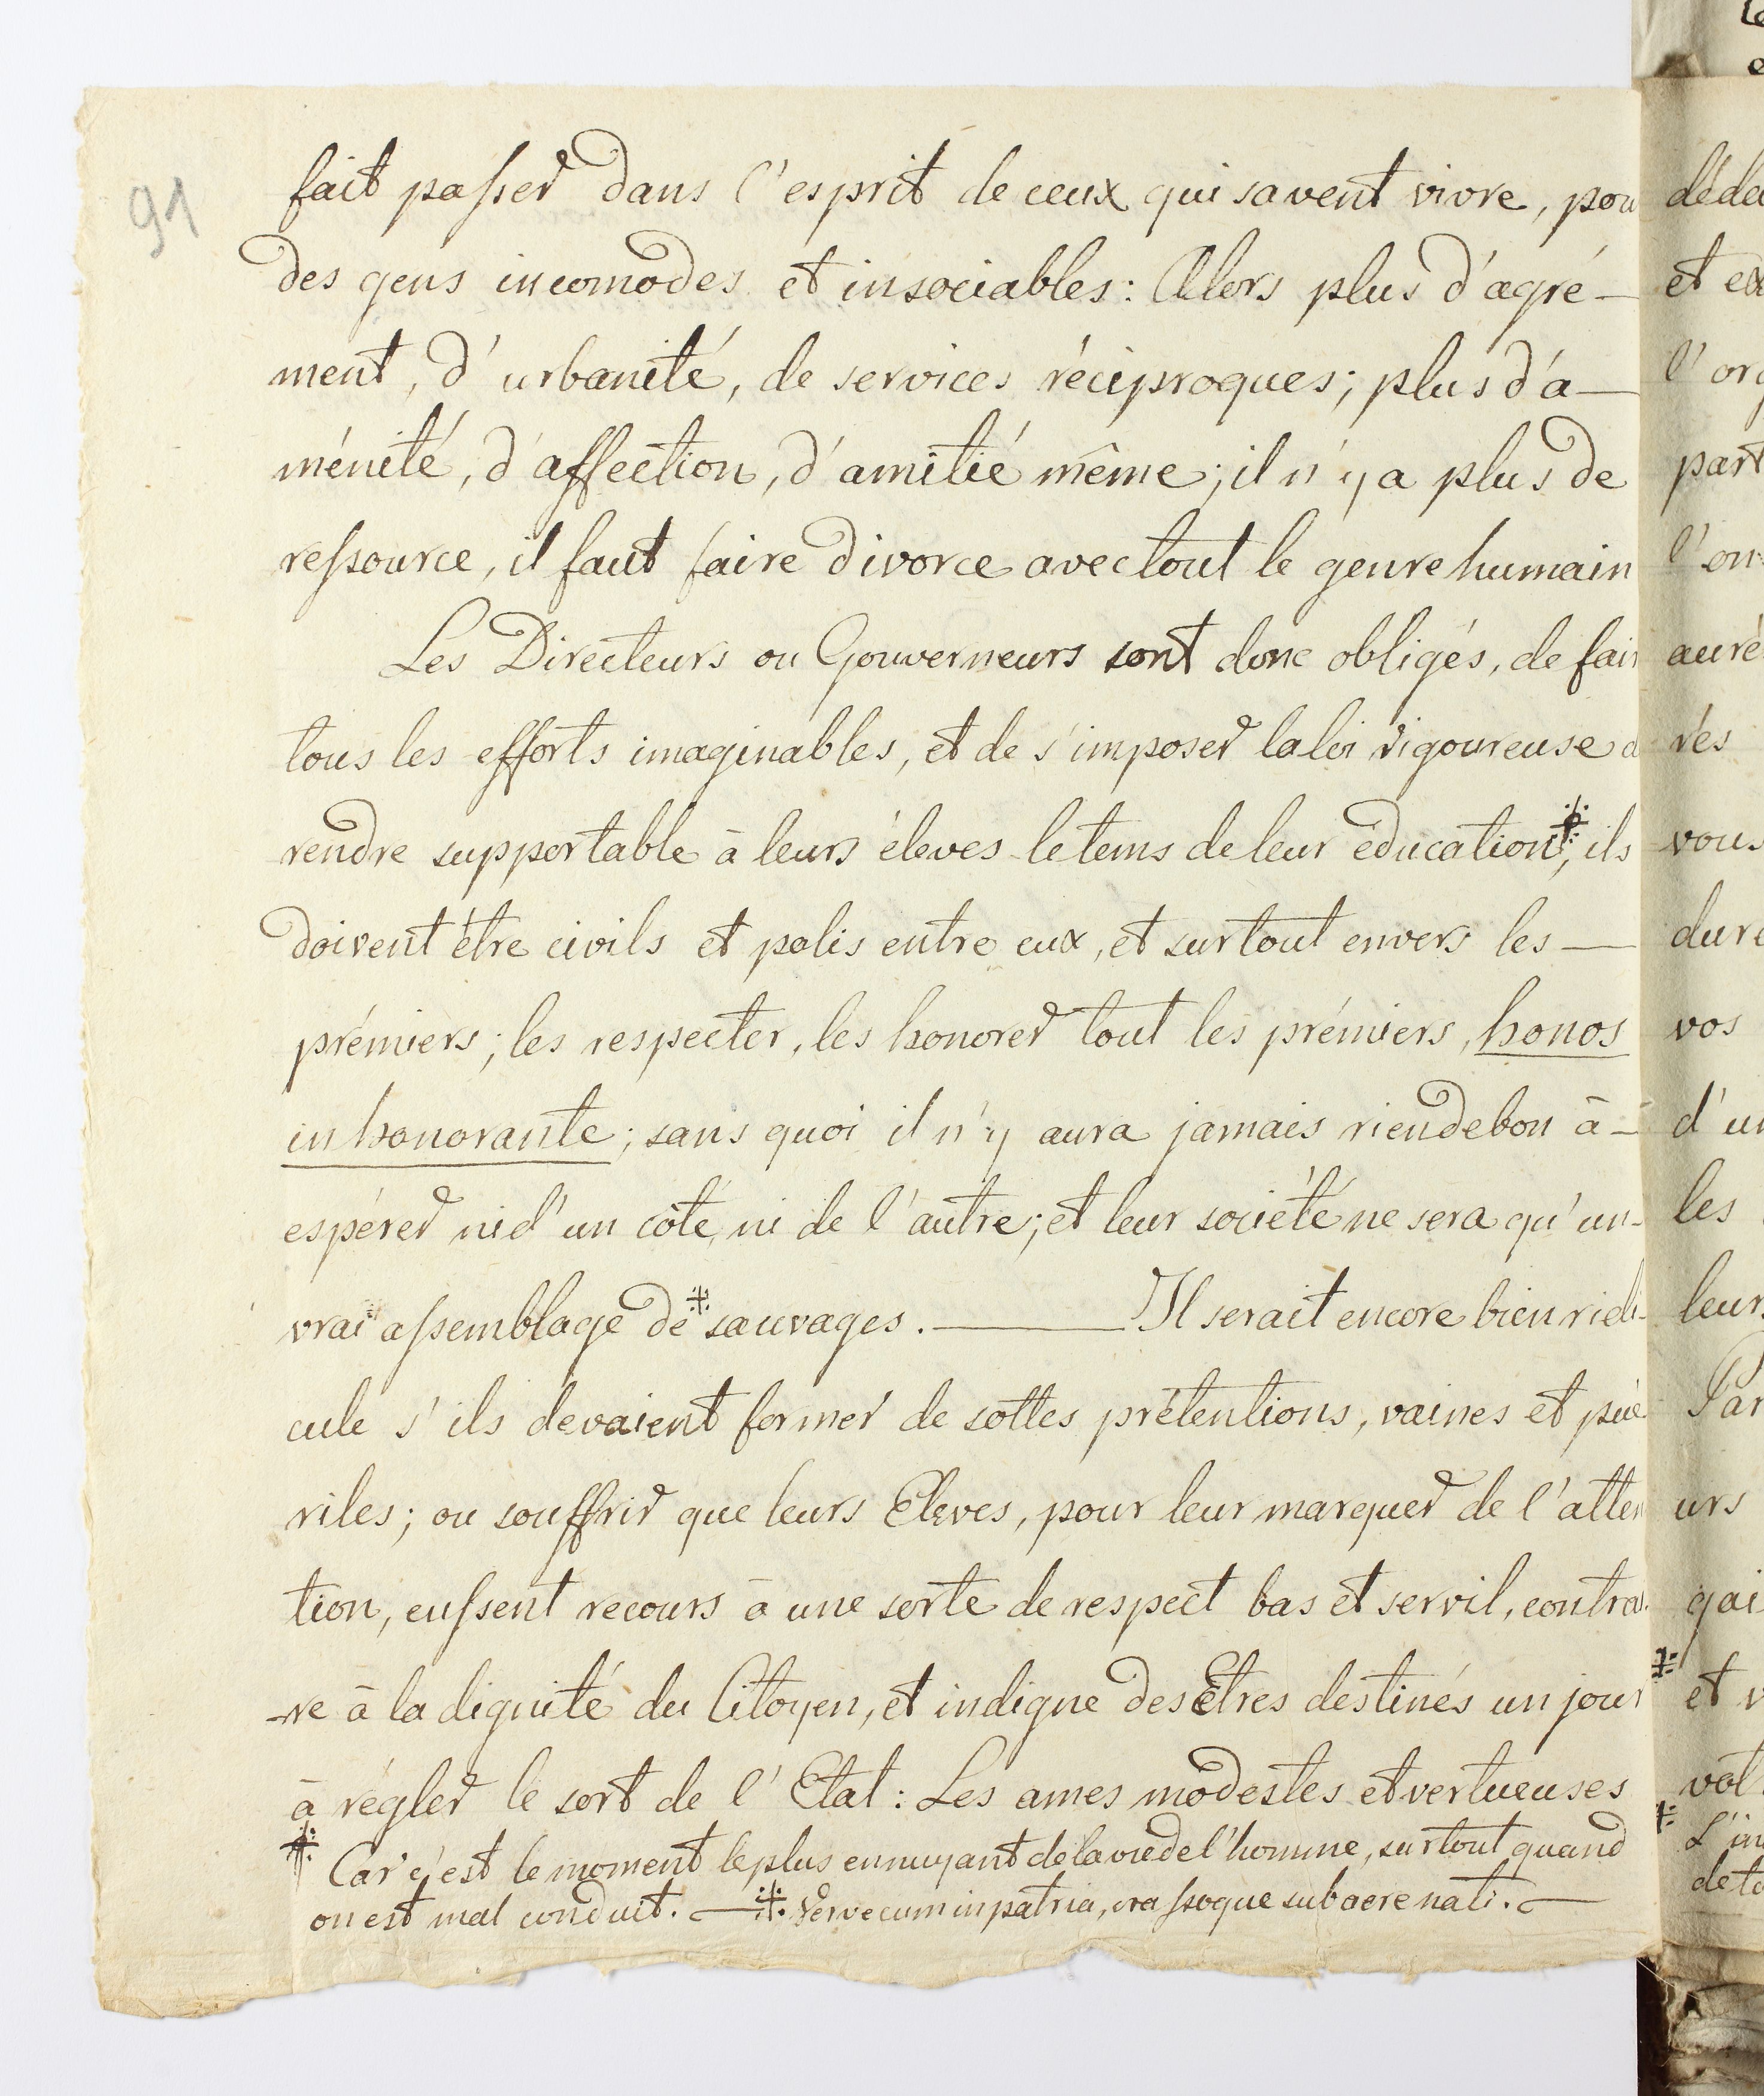 91
fait passer dans l'esprit de ceux qui savent vivre, pou
des gens incomodes et insociables: Alors plus d'agré-
ment, d'urbanité, de services réciproques; plus d'a-
ménité, d'affection, d'amitié même; il n'y a plus de
ressource, il faut faire divorce avec tout le genre humain
Les Directeurs ou Gouverneurs sont donc obligés, de fai
tous les efforts imaginables, et de s'imposer la loi rigoureuse d
rendre supportable à leurs éleves le tems de leur éducation⁜; ils
doivent être civils et polis entre eux, et surtout envers les —
prémiers; les respecter, les honorer tout les prémiers, honos
in honorante; sans quoi il n'y aura jamais rien de bon à -
espérer ni d'un côté, ni de l'autre; et leur société ne sera qu'un-
vrai assemblage de ⁜ sauvages. ——— Il serait encore bien ridi-
cule s'ils devaient former de sottes prétentions, vaines et pué-
riles; ou souffrir que leurs Eleves, pour leur marquer de l'atten
tion, eussent recours à une sorte de respect bas et servil, contrai
-re à la dignité du Citoyen, et indigne des Etres destinés un jour
à régler le sort de l'Etat: Les ames modestes et vertueuses
⁜ Car c'est le moment le plus ennuyant de la vie de l'homme, surtout quand
on est mal conduit. — ⁜ Vervecum in patria, crassoque sub aere nati. —
déde
et ex
l'org
part
l'on
auré
rés
vous
dure
vos
d'un
les
leur
Par
urs
gai
⁜ et v
vol
⁜ L'in
de to